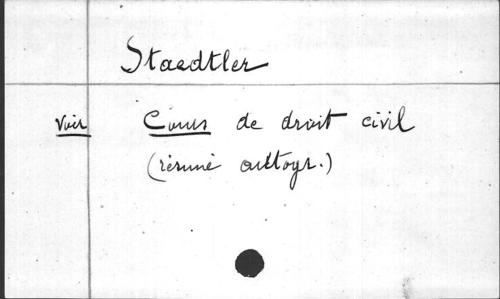 Staedtler
Voir Cours de droit civil
(résumé autogr.)